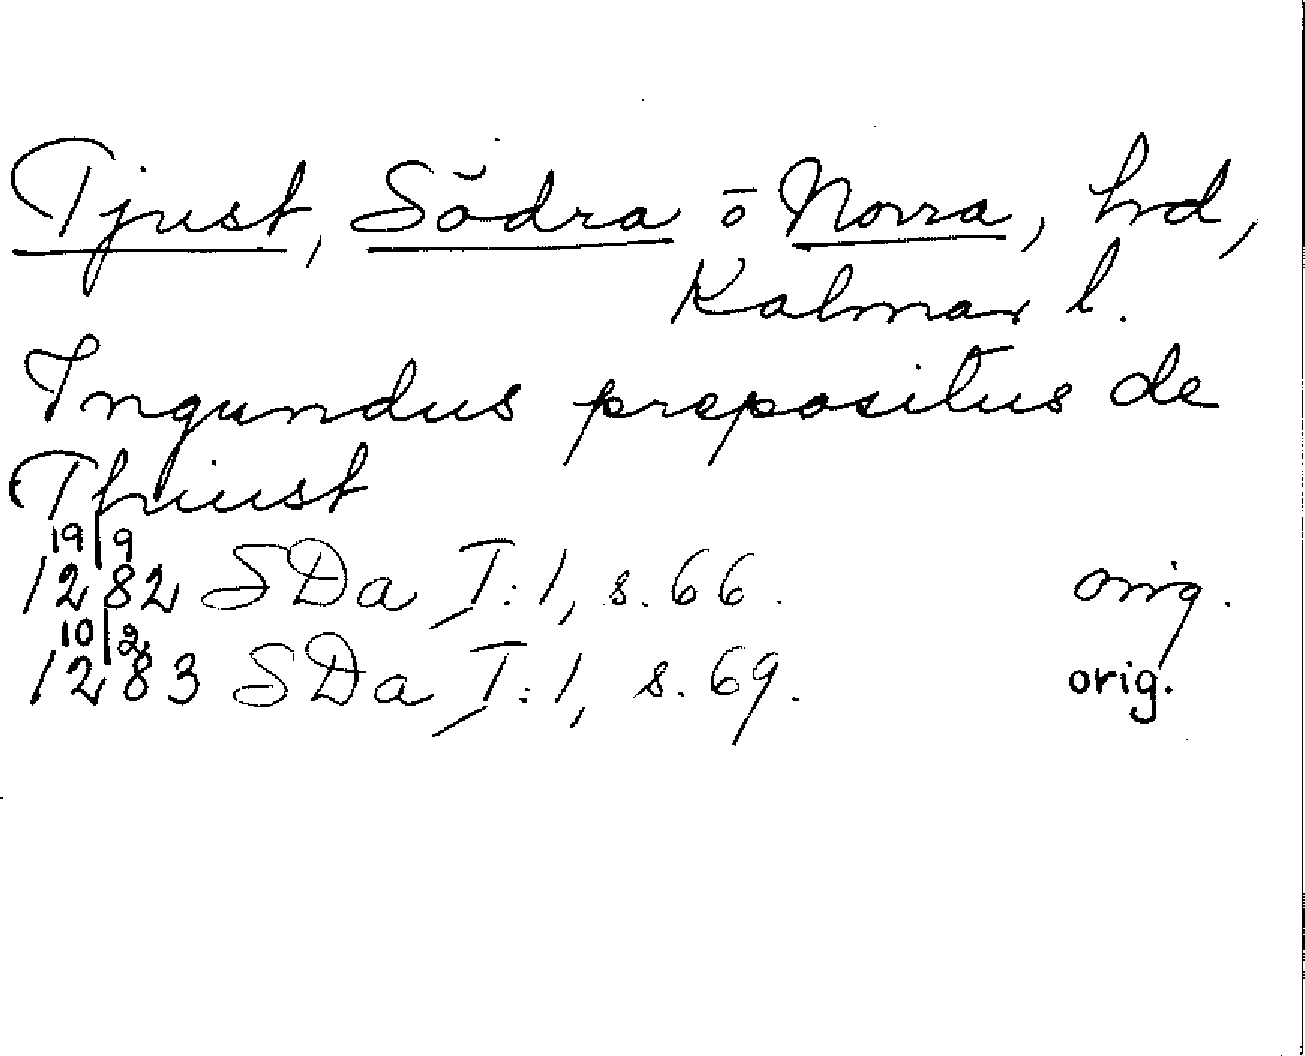 Tjust, Södra o Norra, hd,
Kalmar l.
Ingundus prepositus de
Thiust
19/9
1282 SDa I:1, s. 66. orig.
10/2
1283 SDa I:1, s. 69. orig.